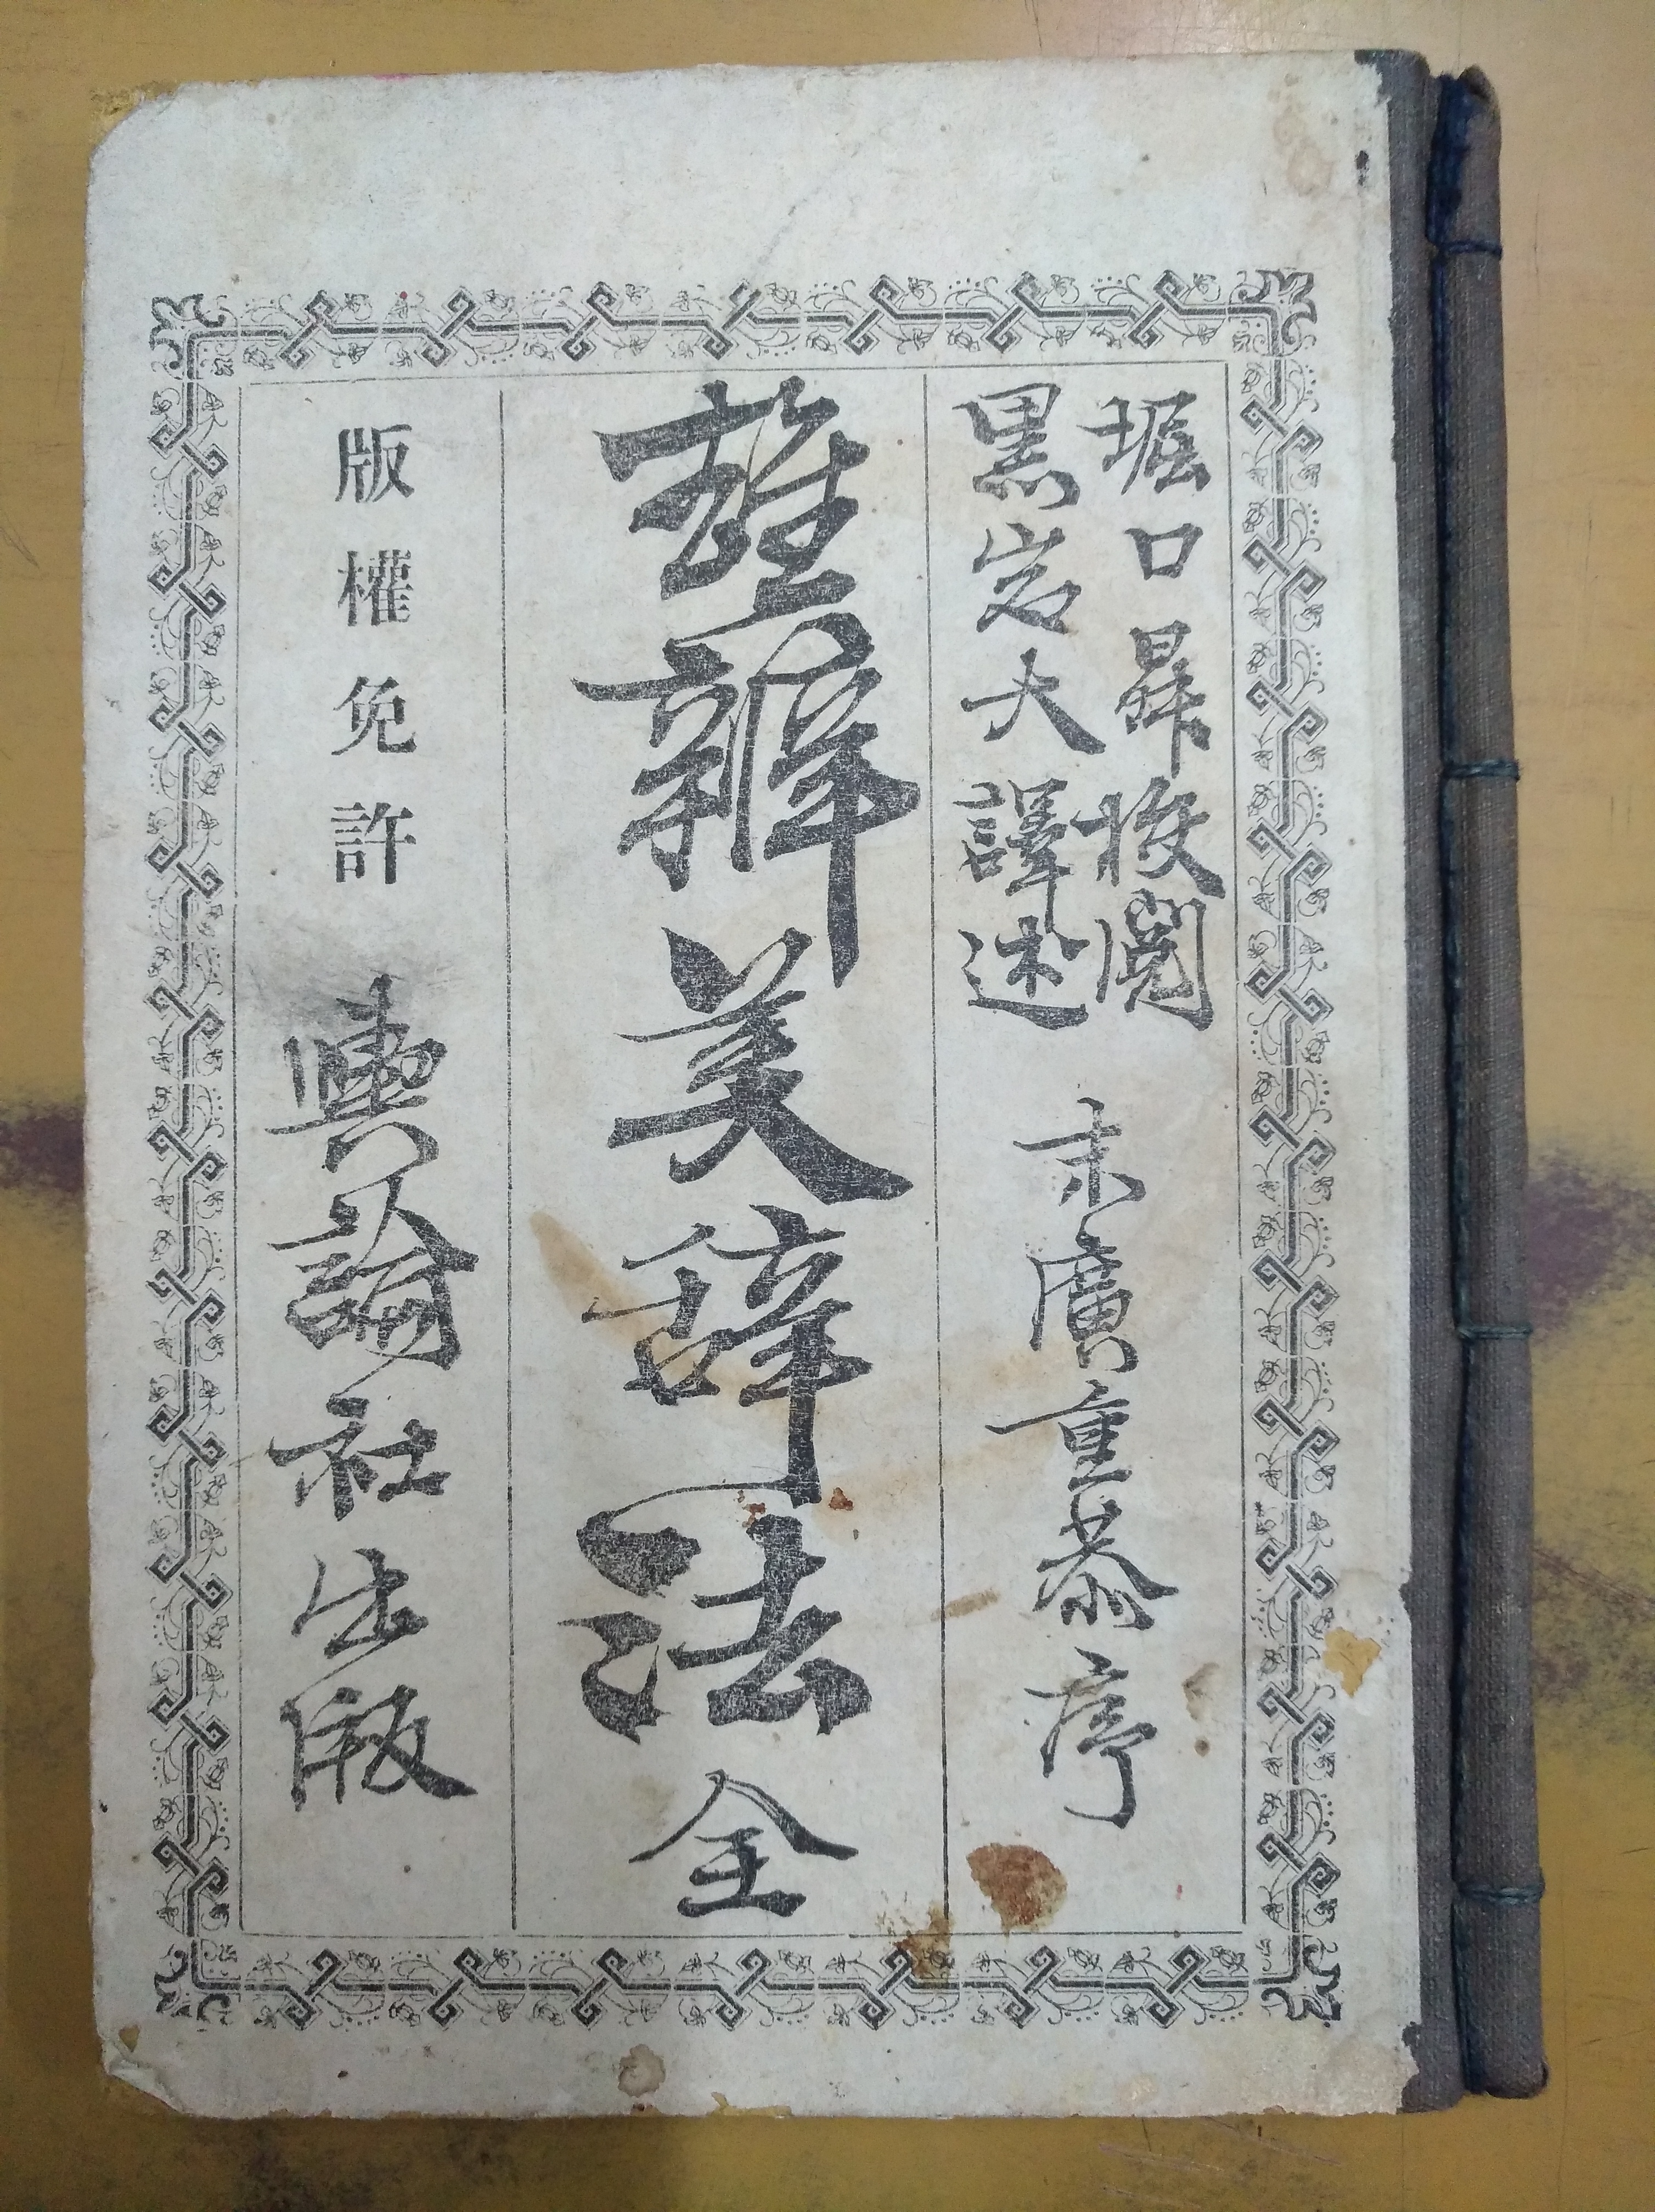 堀口昇校閲
黒岩大譯述
末廣重恭序
雄辯美辞法 全
版權免許
輿論社出版